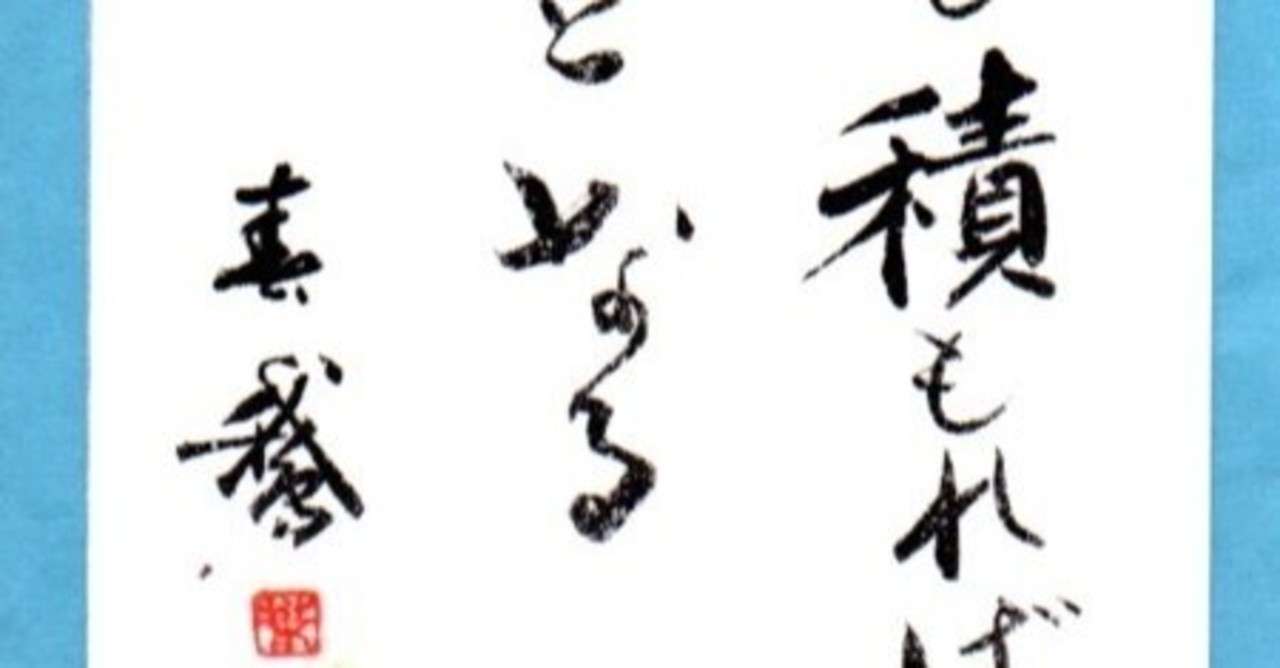 積もれば
となる